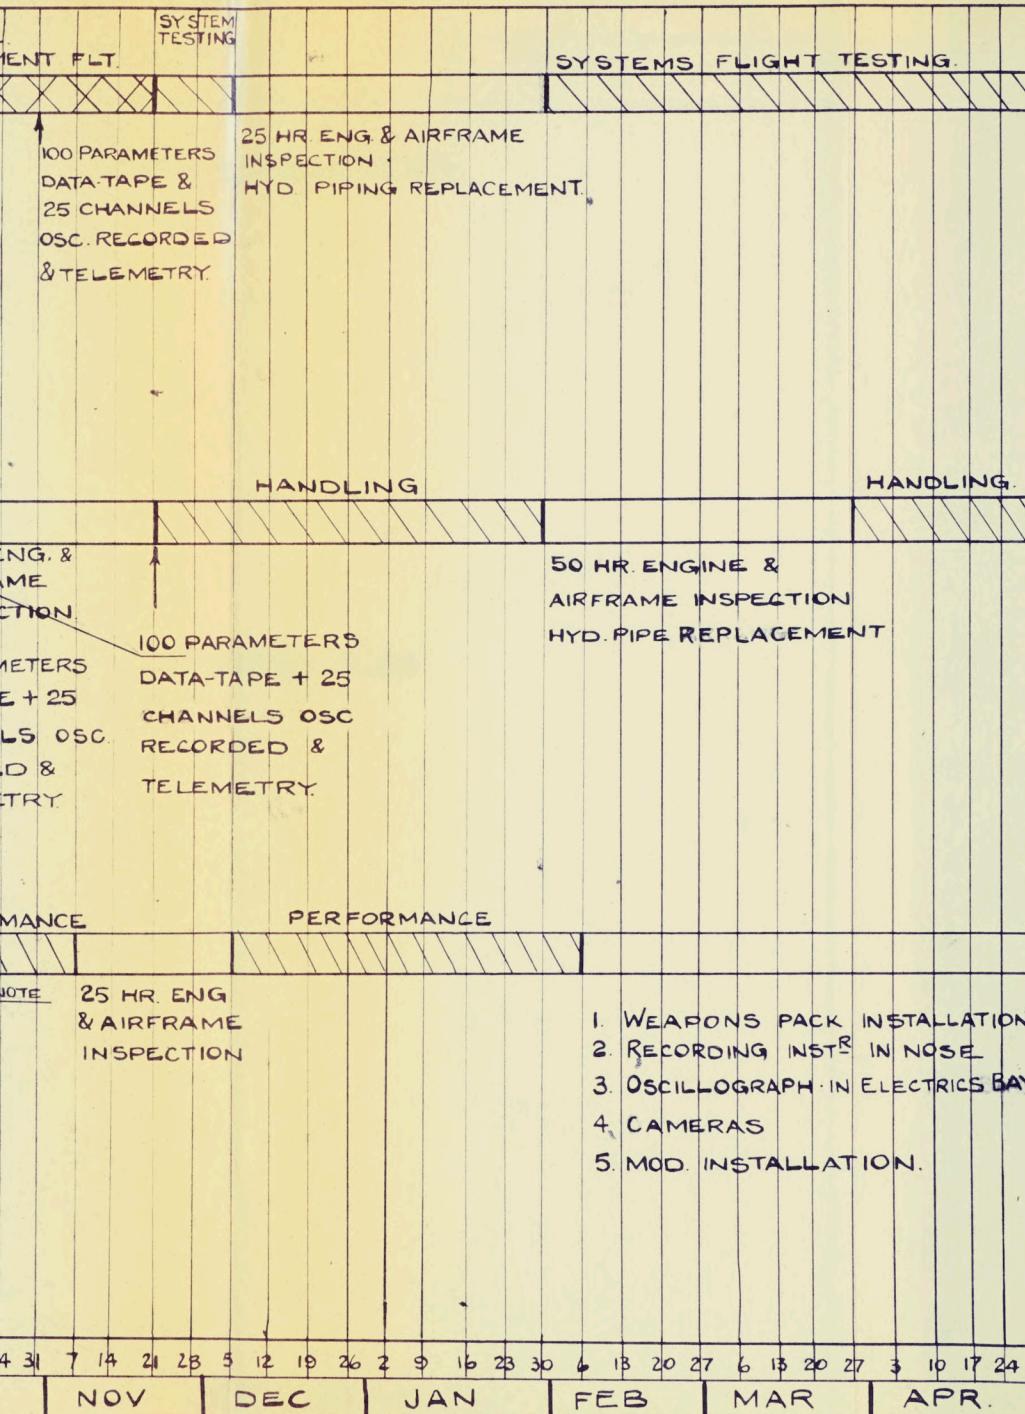 SYSTEM
TESTING
MENT FLT.
SYSTEMS FLIGHT TESTING.
100 PARAMETERS
DATA-TAPE &
25 CHANNELS
OSC. RECORDED
& TELEMETRY.
25 HR. ENG. & AIRFRAME
INSPECTION
HYD. PIPING REPLACEMENT.
HANDLING
HANDLING.
ENG. &
AME
CTION
METERS
E + 25
LS OSC.
ED &
ETRY.
100 PARAMETERS
DATA-TAPE + 25
CHANNELS OSC
RECORDED &
TELEMETRY.
50 HR. ENGINE &
AIRFRAME INSPECTION
HYD. PIPE REPLACEMENT
MANCE
PERFORMANCE
NOTE
25 HR. ENG
& AIRFRAME
INSPECTION
1. WEAPONS PACK INSTALLATION
2. RECORDING INSTR IN NOSE
3. OSCILLOGRAPH IN ELECTRICS BAY
4. CAMERAS
5. MOD. INSTALLATION.
4 31 7 14 21 28 5 12 19 26 2 9 16 23 30 6 13 20 27 6 13 20 27 3 10 17 24
NOV DEC JAN FEB MAR APR.